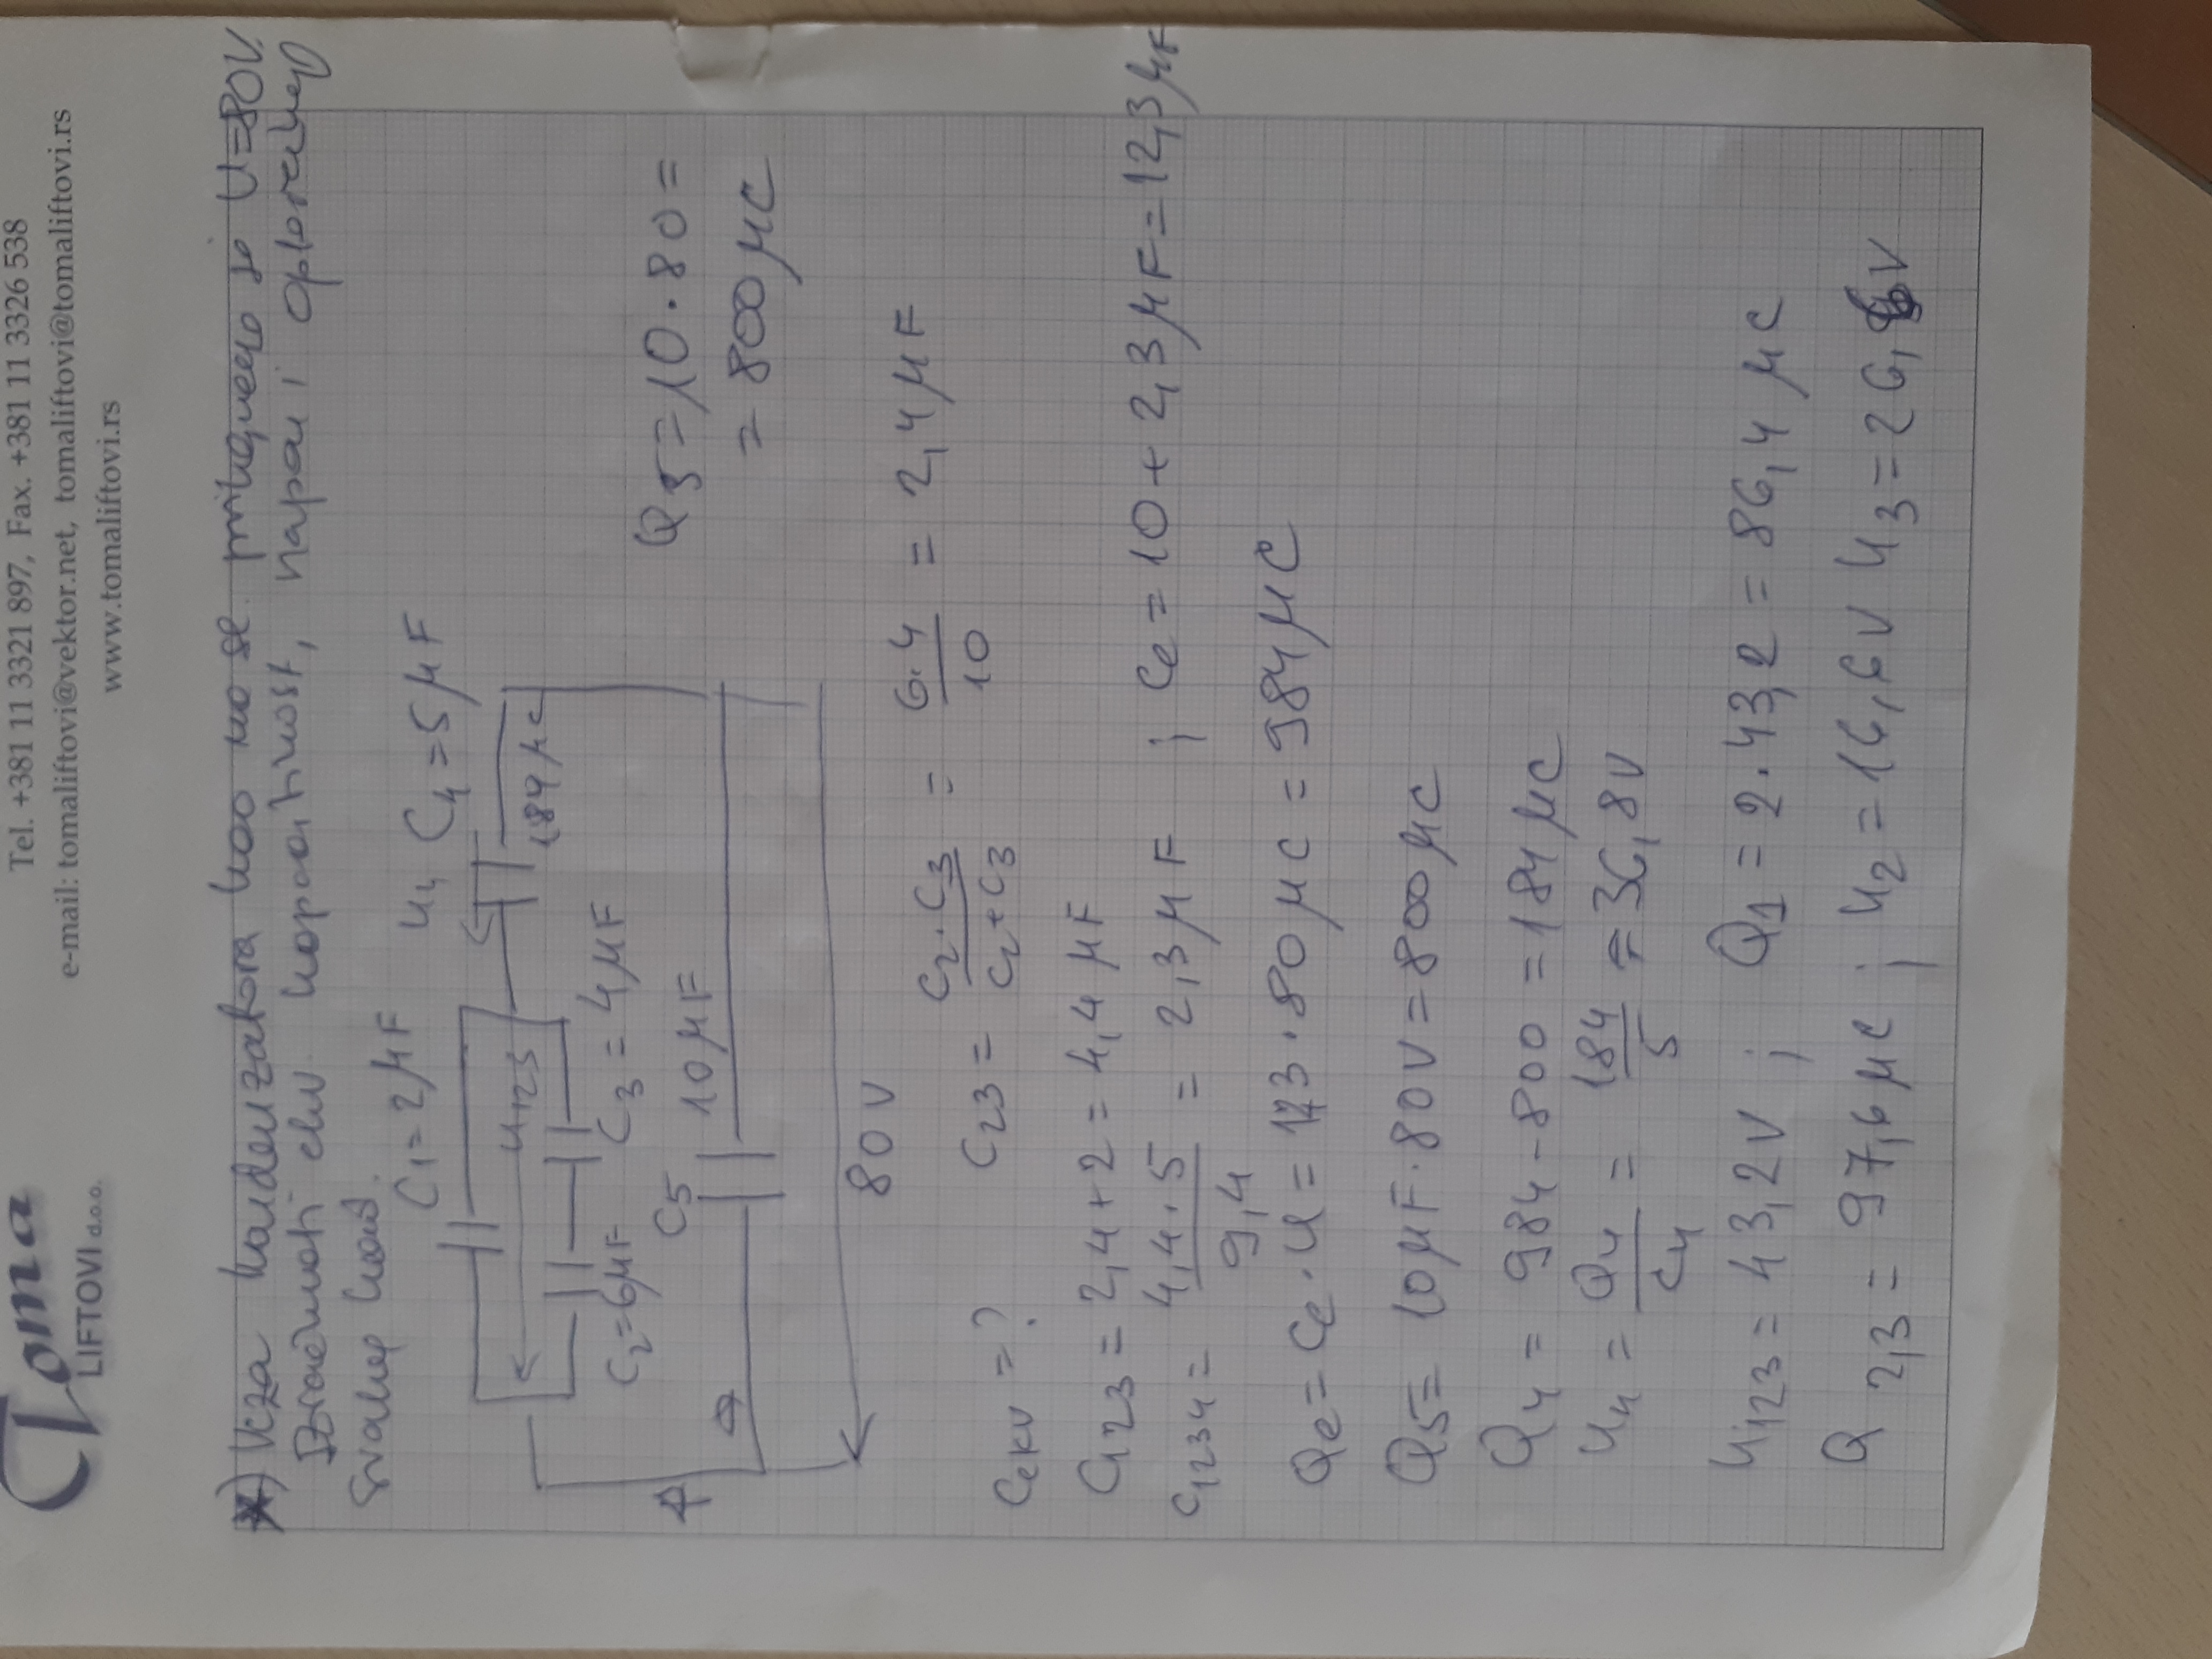 Toma
LIFTOVI d.o.o.
Tel. +381 11 3321 897, Fax. +381 11 3326 538
e-mail: tomaliftovi@vektor.net, tomaliftovi@tomaliftovi.rs
www.tomaliftovi.rs
*) Veza kondenzatora kao na sl. priključeno je U=80V.
ekv. kapacitivnost, napon i opterećenje
svakog kond.
C1=2μF U4 C4=5μF
U123
184μC
C2=6μF C3=4μF
C5 10μF
80V
Q5=10·80=
=800μC
Cekv=? C23= C2·C3/C2+C3 = 6·4/10 = 2,4μF
C123=2,4+2=4,4μF
C1234= 4,4·5/9,4 = 2,3μF ; Ce=10+2,3μF=12,3μF
Qe=Ce·U=123·80μC=984μC
Q5=10μF·80V=800μC
Q4=984-800=184μC
U4= Q4/C4 = 184/5 = 36,8V
U123=43,2V ; Q1=2·43,2=86,4μC
Q2,3=97,6μC ; U2=16,6V U3=26,6V